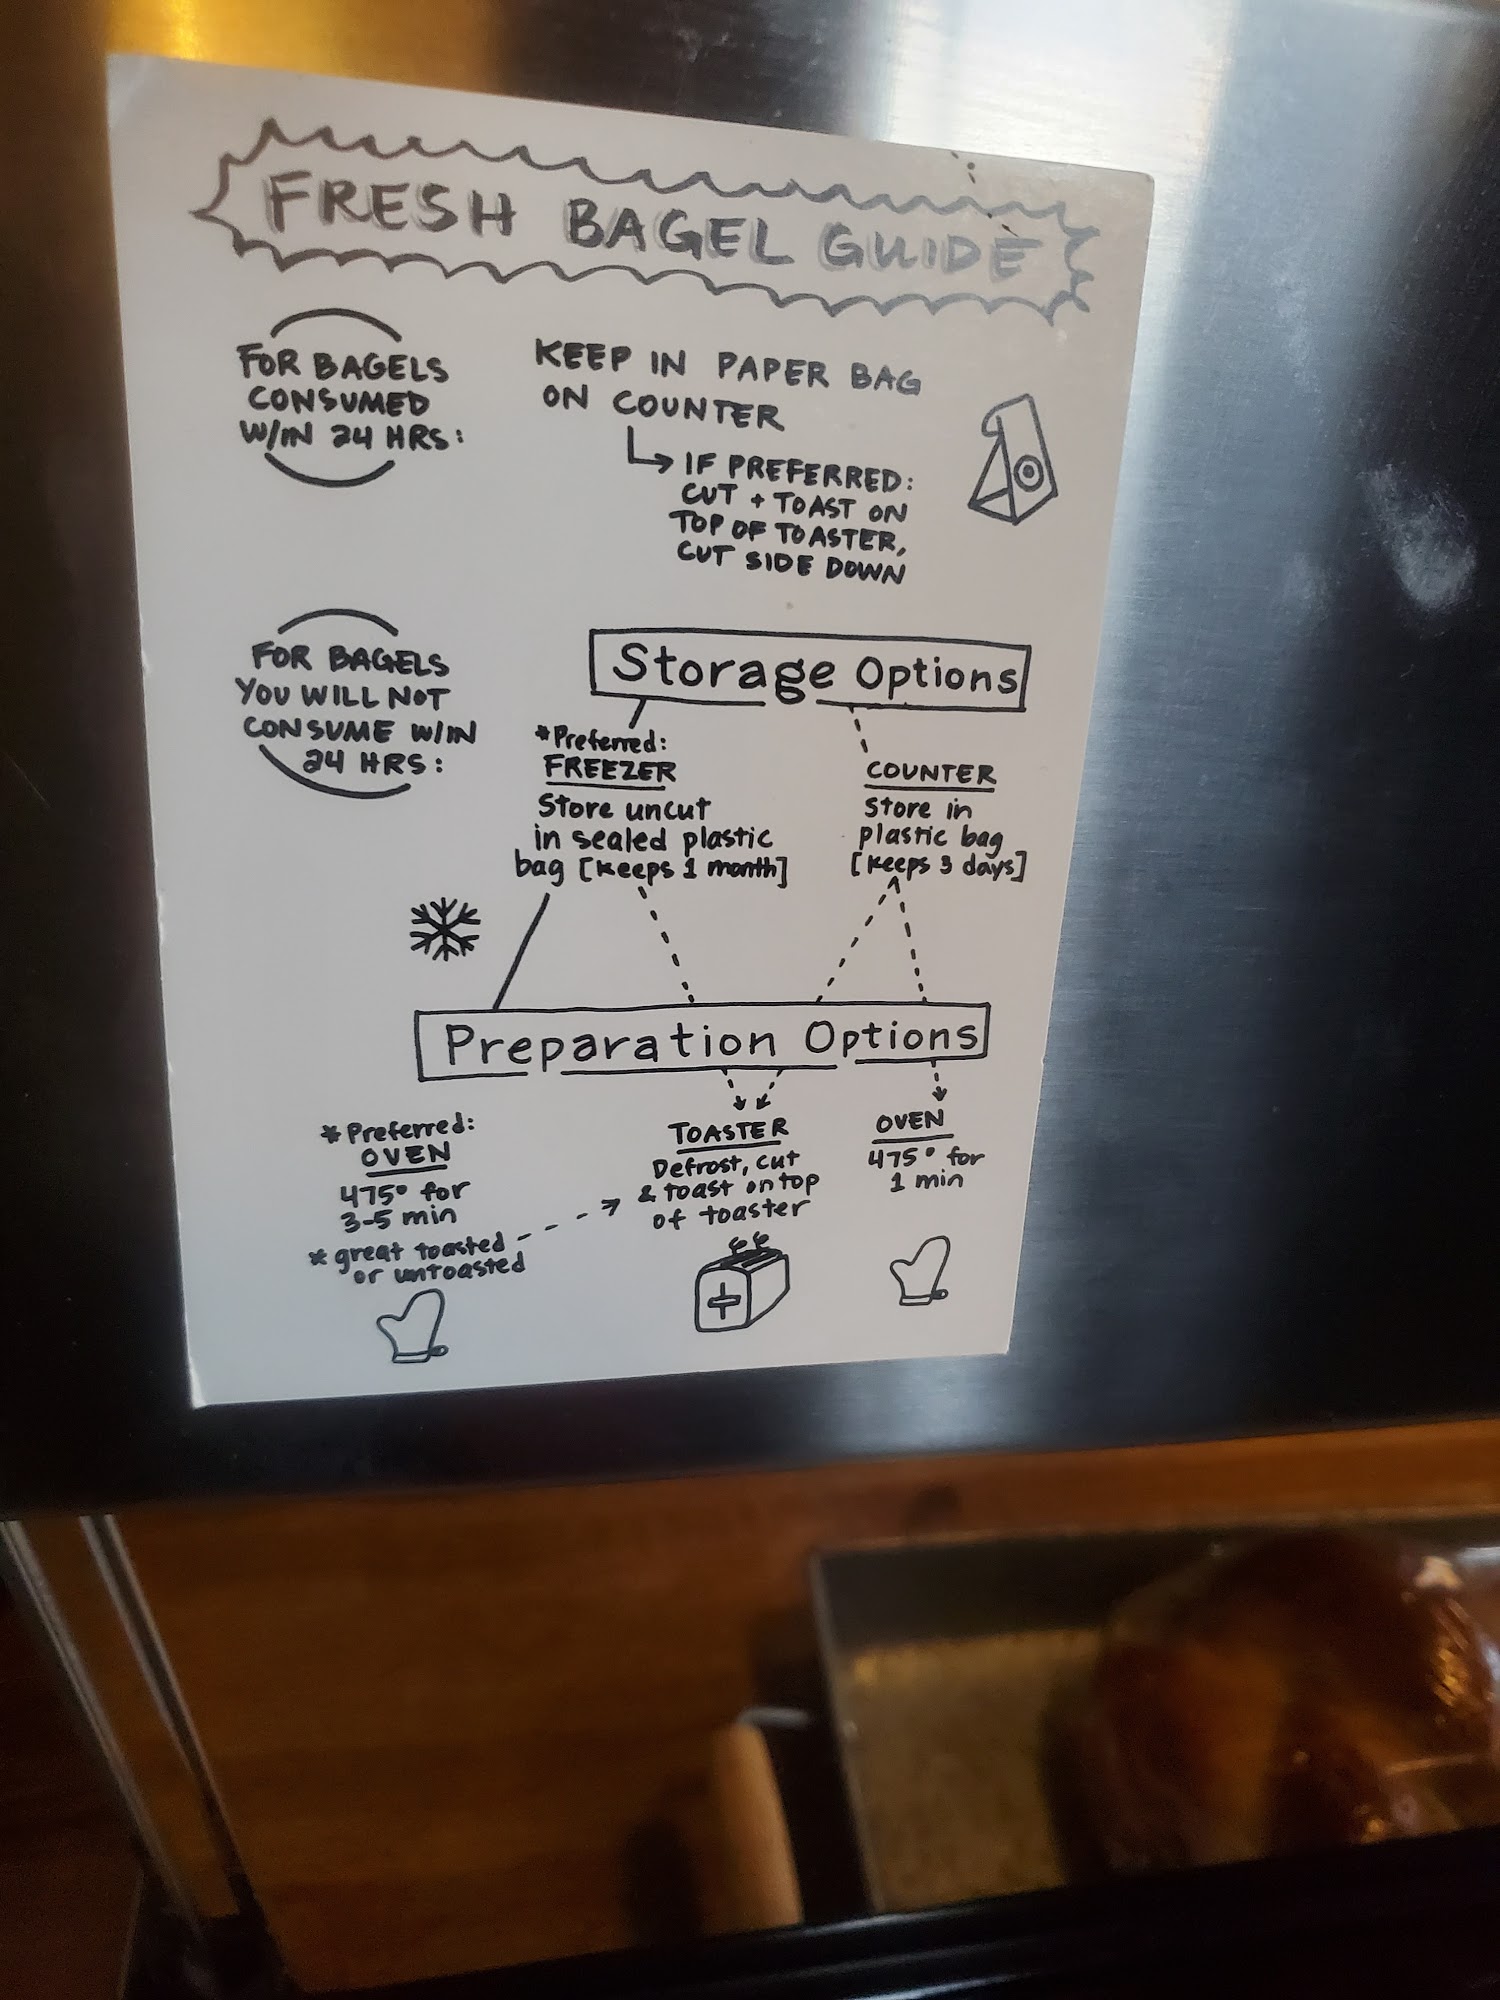 FRESH BAGEL GUIDE
FOR BAGELS
CONSUMED
W/IN 24 HRS:
KEEP IN PAPER BAG
ON COUNTER
IF PREFERRED:
CUT + TOAST ON
TOP OF TOASTER,
CUT SIDE DOWN
FOR BAGELS
YOU WILL NOT
CONSUME W/IN
24 HRS:
Storage Options
*Preferred:
FREEZER
Store uncut
in sealed plastic
bag [keeps 1 month]
COUNTER
Store in
plastic bag
[keeps 3 days]
Preparation Options
*Preferred:
OVEN
475° for
3-5 min
*great toasted
or untoasted
TOASTER
Defrost, cut
& toast on top
of toaster
OVEN
475° for
1 min